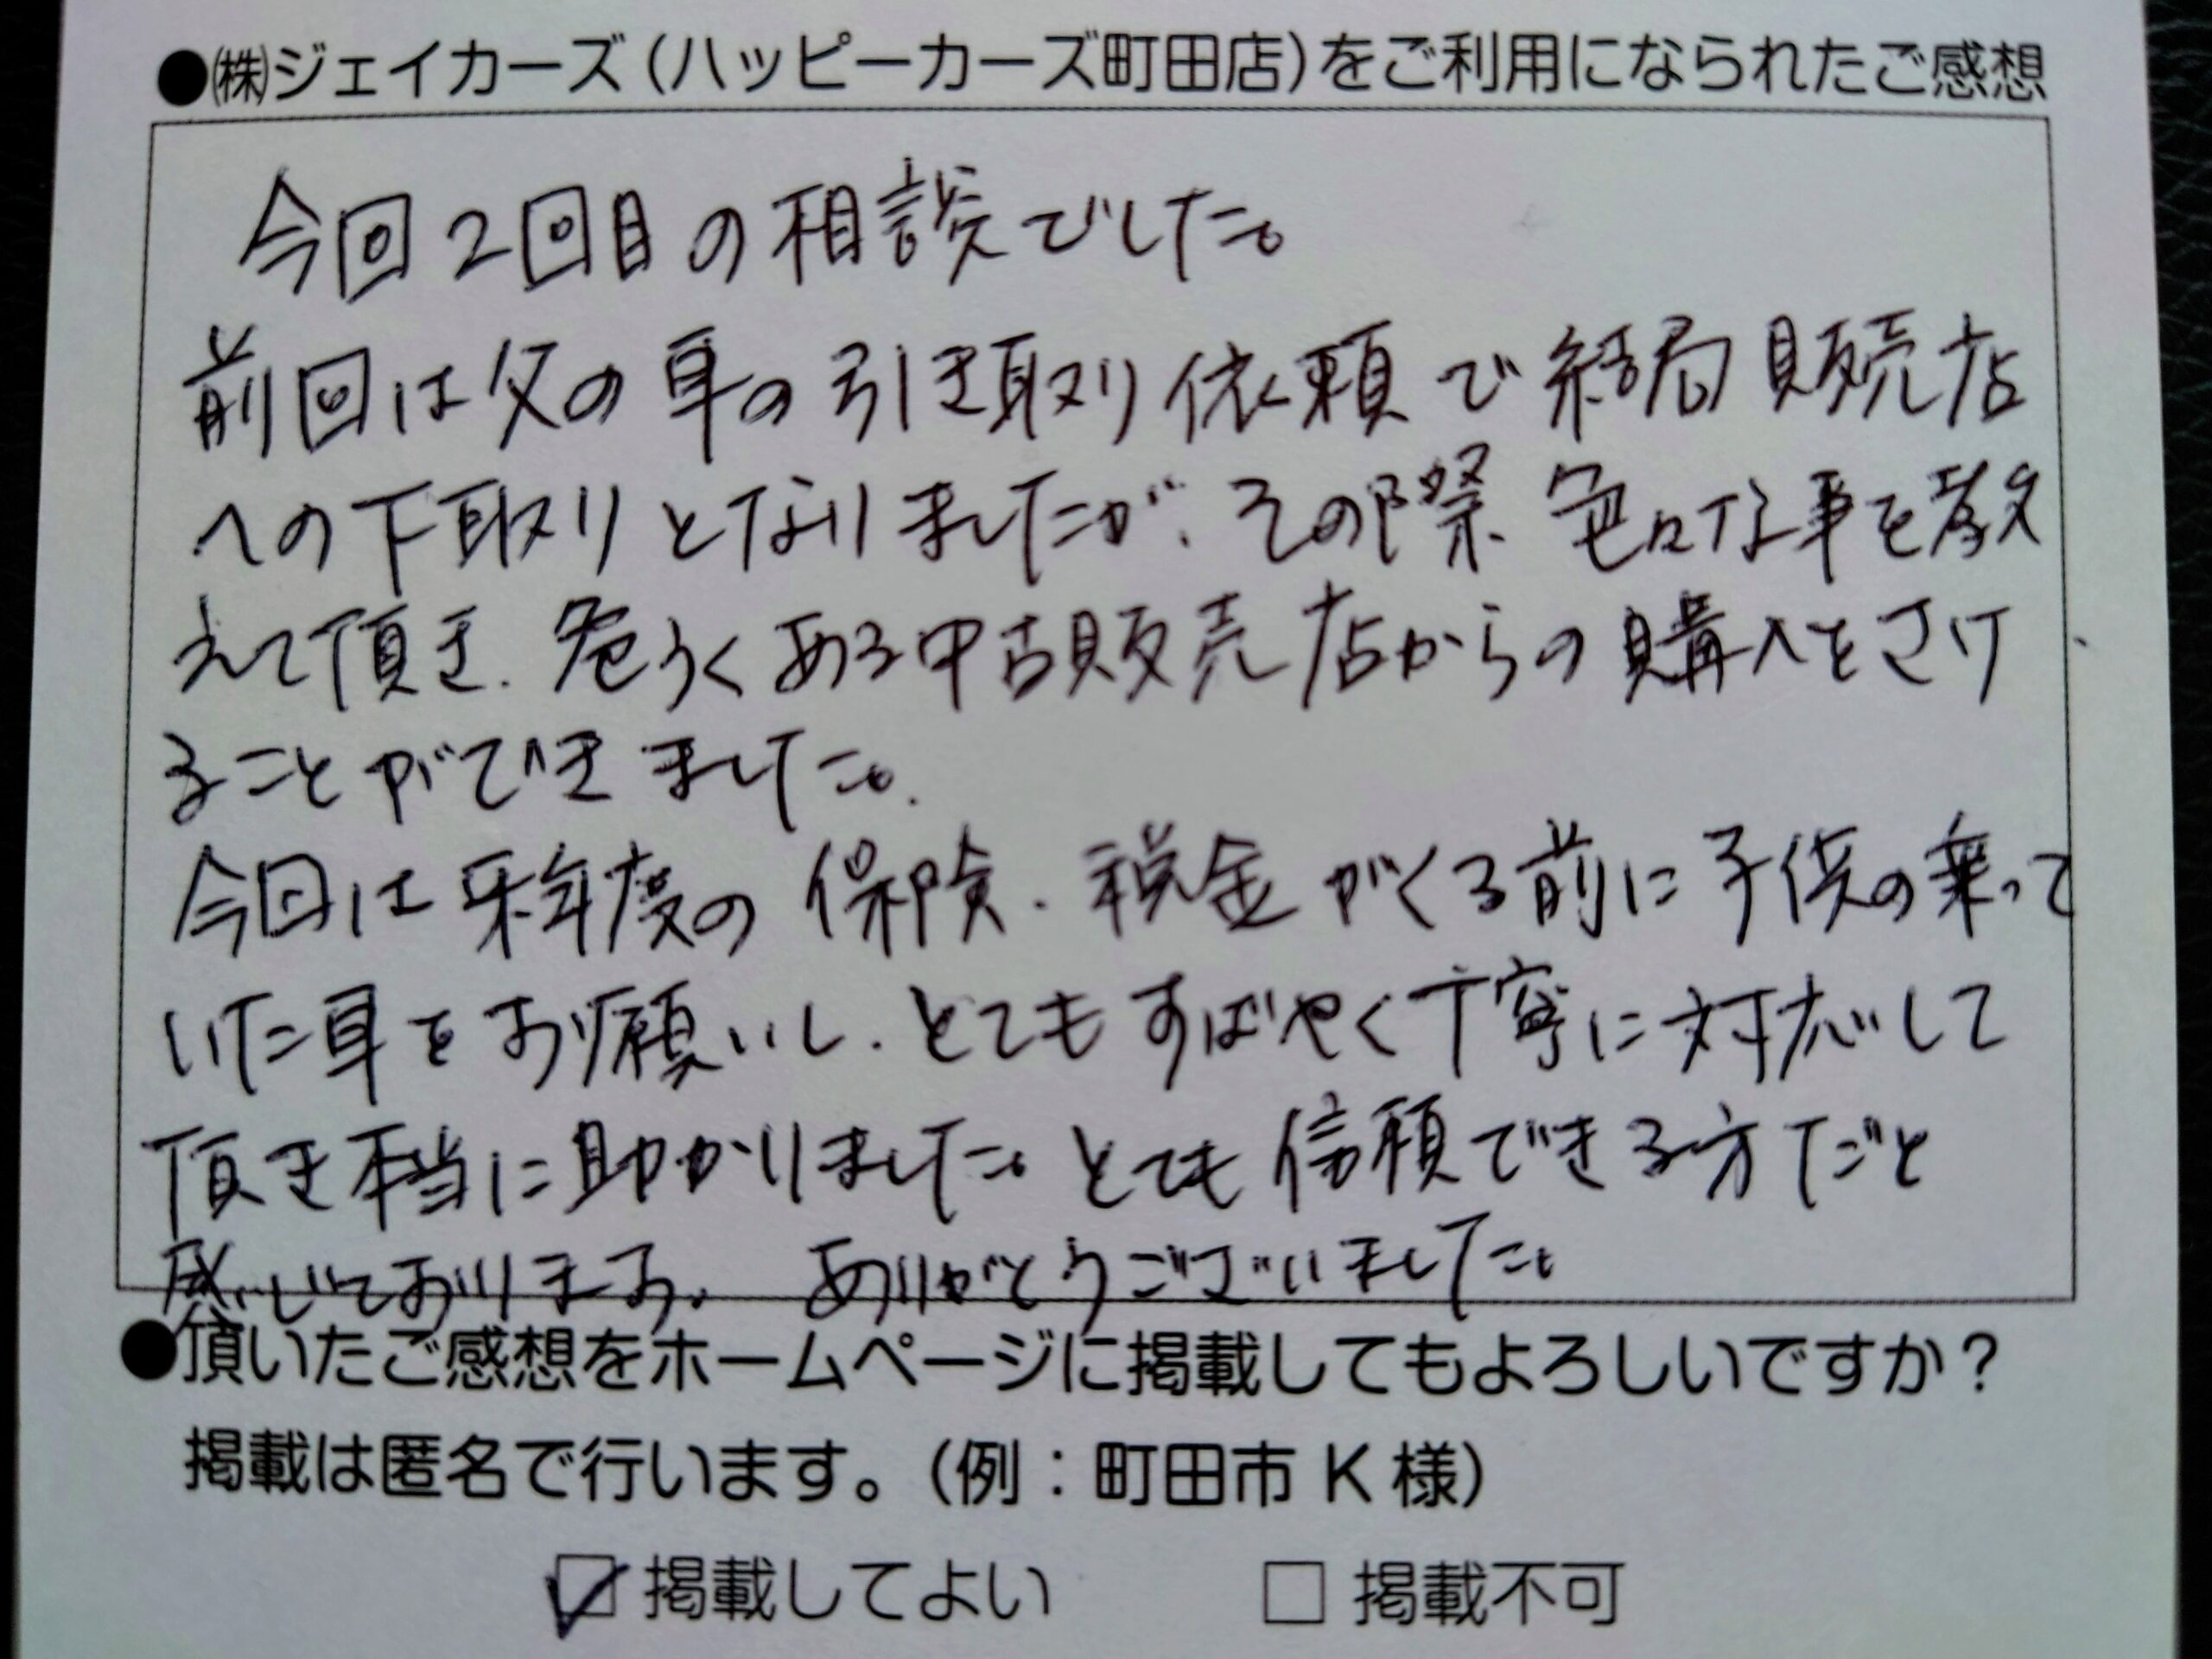 ●㈱ジェイカーズ（ハッピーカーズ町田店）をご利用になられたご感想
今回2回目の相談でした。
前回は父の車の引き取り依頼で結局販売店
への下取りとなりましたが、その際、色々な事を教
えて頂き、危うくある中古販売店からの購入をさけ
ることができました。
今回は来年度の保険、税金がくる前に子供の乗って
いた車をお願いし、とてもすばやく丁寧に対応して
頂き本当に助かりました。とても信頼できる方だと
感じております。ありがとうございました。
●頂いたご感想をホームページに掲載してもよろしいですか？
掲載は匿名で行います。（例：町田市 K 様）
☑ 掲載してよい　□ 掲載不可